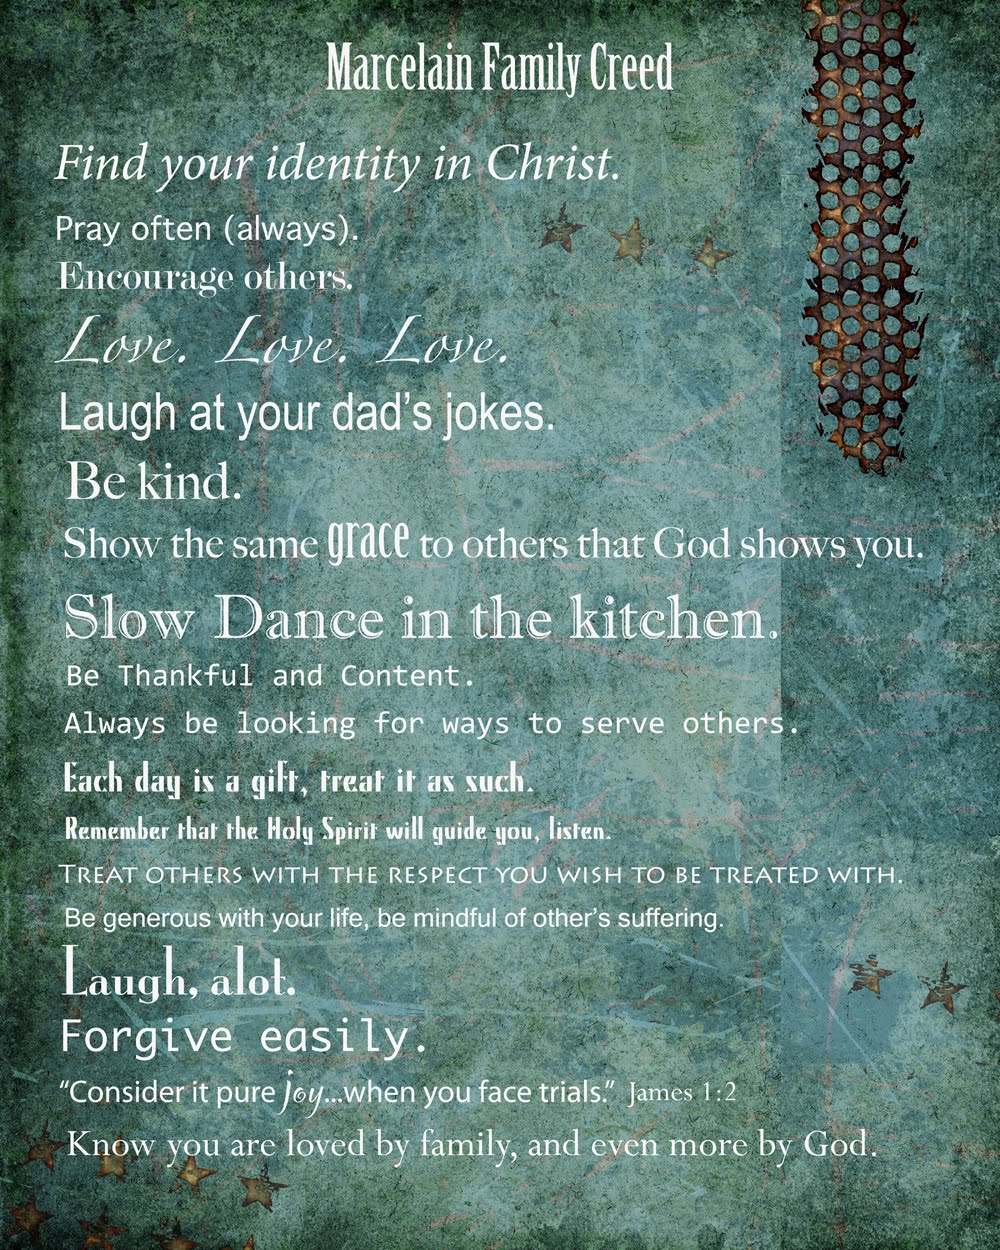 Marcelain Family Creed
Find your identity in Christ.
Pray often (always).
Encourage others.
Love. Love. Love.
Laugh at your dad’s jokes.
Be kind.
Show the same grace to others that God shows you.
Slow Dance in the kitchen.
Be Thankful and Content.
Always be looking for ways to serve others.
Each day is a gift, treat it as such.
Remember that the Holy Spirit will guide you, listen.
TREAT OTHERS WITH THE RESPECT YOU WISH TO BE TREATED WITH.
Be generous with your life, be mindful of other’s suffering.
Laugh, alot.
Forgive easily.
“Consider it pure joy...when you face trials.” James 1:2
Know you are loved by family, and even more by God.